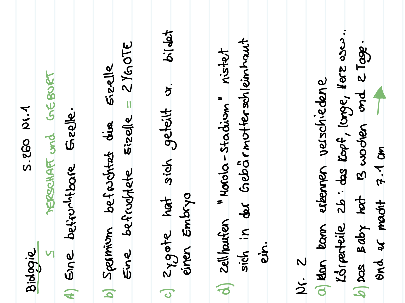 Biologie S. 260 Nr. 1
S NERSCHAFT und GEBURT
A) Eine befruchtbare Eizelle.
b) Spermium befruchtet die Eizelle
Eine befruchtete Eizelle = ZYGOTE
c) Zygote hat sich geteilt u. bildet
einen Embryo
d) Zellhaufen "Morola-Stadium" nistet
sich in der Gebärmutterschleimhaut
ein.
Nr. 2
a) Man kann erkennen verschiedene
Körperteile zb: das Kopf, lunge, Herz usw..
b) Das Baby hat 3 Wochen und 2 Tage.
Und er macht 7.1 cm